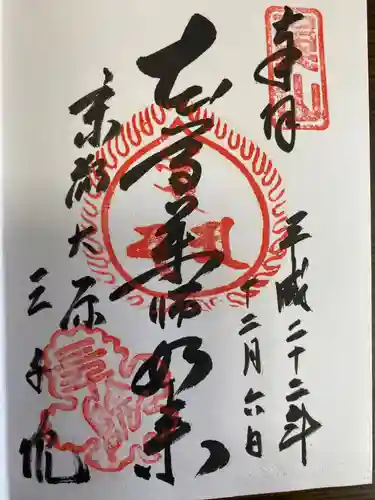 奉拝
平成二十二年
十二月六日
本尊薬師如来
京都大原
三千院